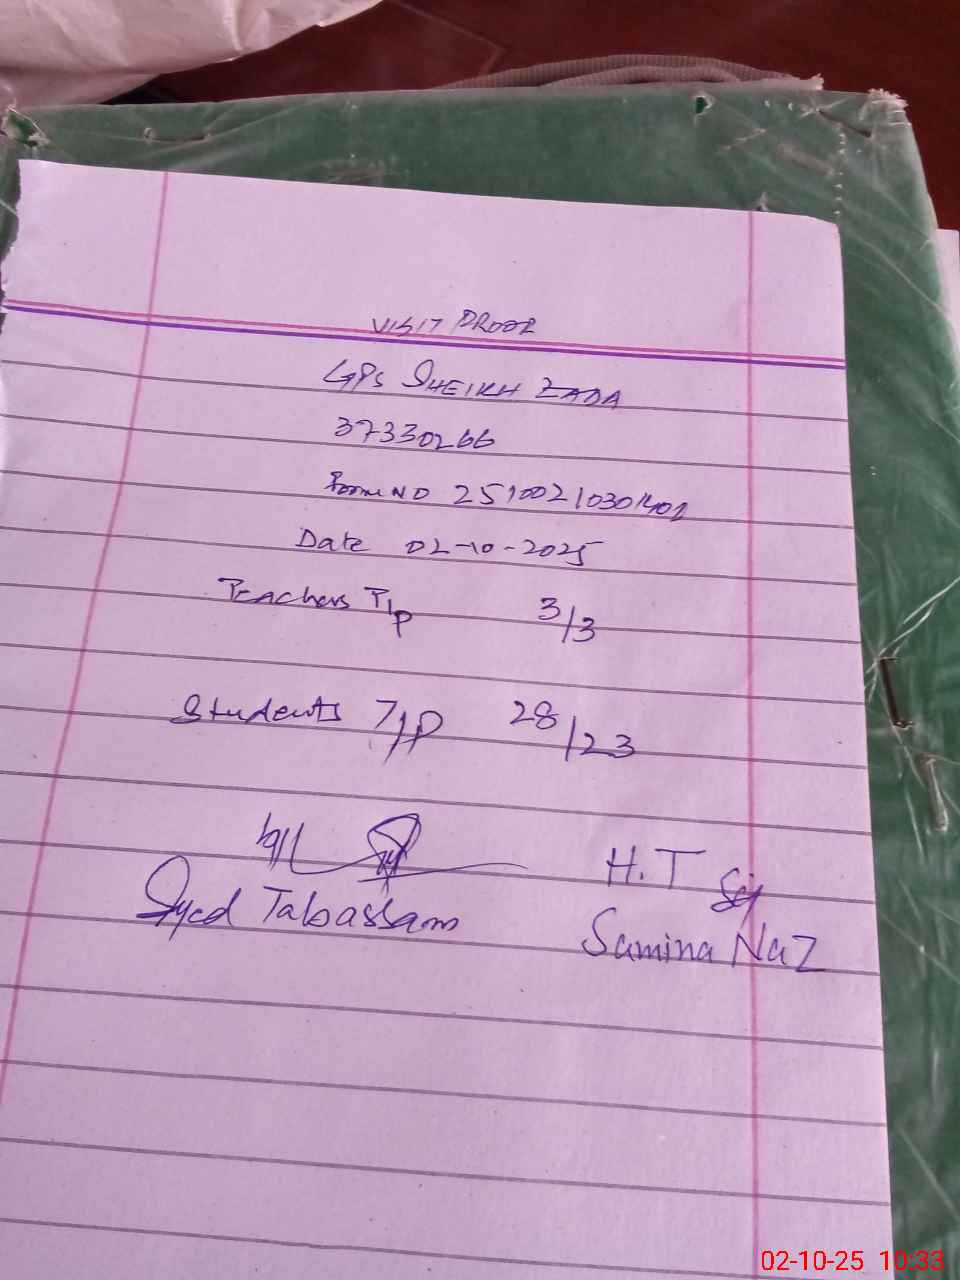 VISIT PROOF
GPS SHEIKH ZADA
37330266
Form NO 25100210301401
Date 02-10-2025
TEAchers T/p 3/3
Students T/P 28/23
H.T
Syed Tabassam
Samina Naz
02-10-25 10:33